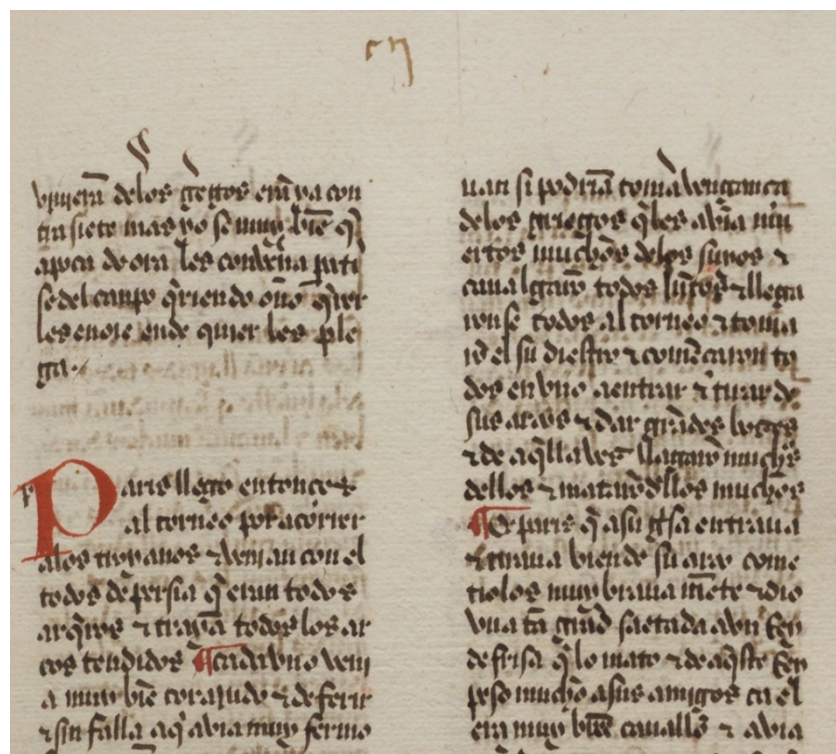 vinierã delos griegos erã ya con
tra siete mas yo se muy biẽ q̃
apoca de ora les convẽrna parti
se del canpo q̃riendo o nõ q̃rer
les enoie ende quier les ple
ga
Paris llego entonce
al torneo por acorrer
alos troyanos ⁊ venian con el
todos de persia q̃ eran todos
arq̃ros ⁊ trayã todos los ar
cos tendidos ¶ cada vno veni
a muy biẽ coraiudo ⁊ de ferir
⁊ sin falla aq̃ avia muy fermo
uan si podriã tomar vengança
delos griegos q̃les abiã mu
ertos muchos delos suyos ⁊
caualgarõ todos iũtos ⁊ llega
ron se todos al torneo ⁊ toma
rõ el su diestro ⁊ comẽcaron to
dos en vno aentrar ⁊ tirar de
sus arcos ⁊ dar grãdes bozes
⁊ de aq̃lla vez llagarõ muchos
dellos ⁊ matarõ dllos muchos
¶ E paris q̃ a su guisa entraua
⁊ tiraua bien de su arco come
tiolos muy braua mẽte ⁊ dio
vna tã grãd saetada avn Rey
de frisa q̃ lo mato ⁊ de aq̃ste Rey
peso mucho a sus amigos ca el
era muy buẽ cauallo ⁊ abia